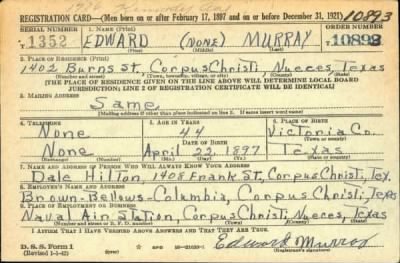 REGISTRATION CARD—(Men born on or after February 17, 1897 and on or before December 31, 1921) 10893
SERIAL NUMBER 1. NAME (Print) ORDER NUMBER
T 1352 EDWARD (NONE) MURRAY 10893
(First) (Middle) (Last)
2. PLACE OF RESIDENCE (Print)
1402 Burns St. Corpus Christi, Nueces, Texas
(Number and street) (Town, township, village, or city) (County) (State)
[THE PLACE OF RESIDENCE GIVEN ON THE LINE ABOVE WILL DETERMINE LOCAL BOARD
JURISDICTION; LINE 2 OF REGISTRATION CERTIFICATE WILL BE IDENTICAL]
3. MAILING ADDRESS
Same
(Mailing address if other than place indicated on line 2. If same insert word same)
4. TELEPHONE 5. AGE IN YEARS 6. PLACE OF BIRTH
None 44 Victoria Co.
DATE OF BIRTH (Town or county)
None April 22, 1897 Texas
(Mo.) (Day) (Yr.) (State or country)
7. NAME AND ADDRESS OF PERSON WHO WILL ALWAYS KNOW YOUR ADDRESS
Dale Hilton, 1408 Frank St, Corpus Christi, Tex.
8. EMPLOYER'S NAME AND ADDRESS
Brown-Bellows-Columbia, Corpus Christi, Texas
9. PLACE OF EMPLOYMENT OR BUSINESS
Naval Air Station, Corpus Christi, Nueces, Texas
(Number and street or R. F. D. number) (Town) (County) (State)
I AFFIRM THAT I HAVE VERIFIED ABOVE ANSWERS AND THAT THEY ARE TRUE.
D. S. S. Form 1
(Revised 1-1-42) Edward Murray
(Registrant's signature)